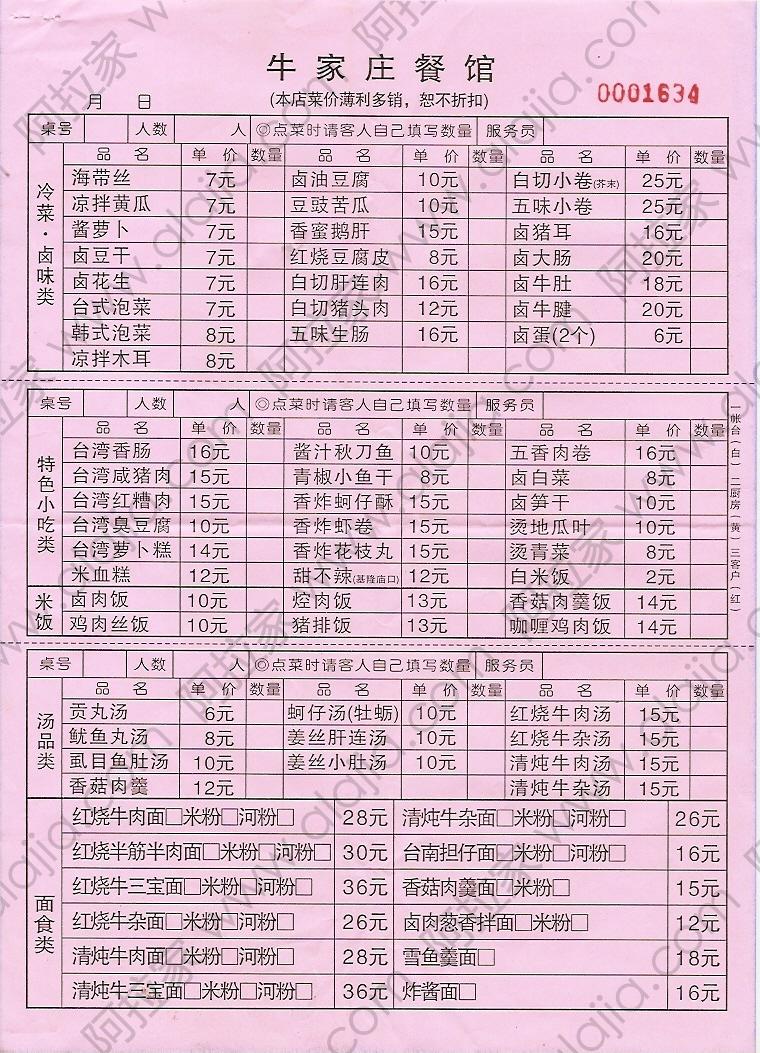 牛家庄餐馆
(本店菜价薄利多销，恕不折扣)
月 日 0001634
桌号 人数 人 ◎点菜时请客人自己填写数量 服务员
冷菜·卤味类
品名 单价 数量 品名 单价 数量 品名 单价 数量
海带丝 7元 卤油豆腐 10元 白切小卷(芥末) 25元
凉拌黄瓜 7元 豆豉苦瓜 10元 五味小卷 25元
酱萝卜 7元 香蜜鹅肝 15元 卤猪耳 16元
卤豆干 7元 红烧豆腐皮 8元 卤大肠 20元
卤花生 7元 白切肝连肉 16元 卤牛肚 18元
台式泡菜 7元 白切猪头肉 12元 卤牛腱 20元
韩式泡菜 8元 五味生肠 16元 卤蛋(2个) 6元
凉拌木耳 8元
桌号 人数 人 ◎点菜时请客人自己填写数量 服务员
特色小吃类
品名 单价 数量 品名 单价 数量 品名 单价 数量
台湾香肠 16元 酱汁秋刀鱼 10元 五香肉卷 16元
台湾咸猪肉 15元 青椒小鱼干 8元 卤白菜 8元
台湾红糟肉 15元 香炸蚵仔酥 15元 卤笋干 10元
台湾臭豆腐 10元 香炸虾卷 15元 烫地瓜叶 10元
台湾萝卜糕 14元 香炸花枝丸 15元 烫青菜 8元
米血糕 12元 甜不辣(基隆庙口) 12元 白米饭 2元
米饭
卤肉饭 10元 焢肉饭 13元 香菇肉羹饭 14元
鸡肉丝饭 10元 猪排饭 13元 咖喱鸡肉饭 14元
一帐台(白) 二厨房(黄) 三客户(红)
桌号 人数 人 ◎点菜时请客人自己填写数量 服务员
汤品类
品名 单价 数量 品名 单价 数量 品名 单价 数量
贡丸汤 6元 蚵仔汤(牡蛎) 10元 红烧牛肉汤 15元
鱿鱼丸汤 8元 姜丝肝连汤 10元 红烧牛杂汤 15元
虱目鱼肚汤 10元 姜丝小肚汤 10元 清炖牛肉汤 15元
香菇肉羹 12元 清炖牛杂汤 15元
面食类
红烧牛肉面□米粉□河粉□ 28元 清炖牛杂面□米粉□河粉□ 26元
红烧半筋半肉面□米粉□河粉□ 30元 台南担仔面□米粉□河粉□ 16元
红烧牛三宝面□米粉□河粉□ 36元 香菇肉羹面□米粉□ 15元
红烧牛杂面□米粉□河粉□ 26元 卤肉葱香拌面□米粉□ 12元
清炖牛肉面□米粉□河粉□ 28元 雪鱼羹面□ 18元
清炖牛三宝面□米粉□河粉□ 36元 炸酱面□ 16元
阿拉家 www.alajia.com